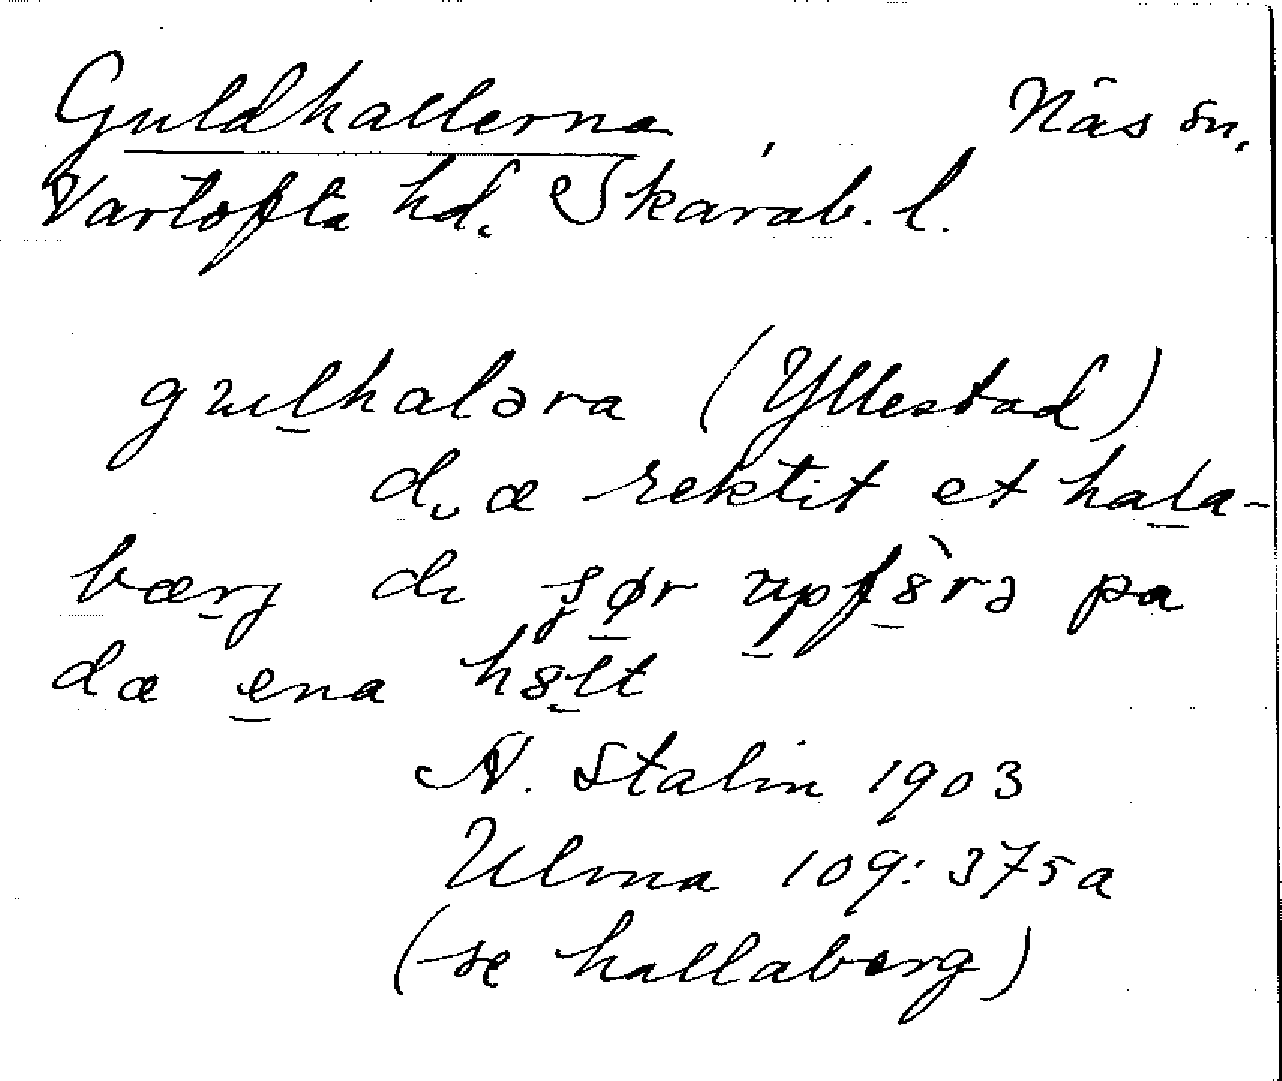 Guldhallerna, Näs sn,
Vartofta hd. Skarab. l.
gulhaləra (Yllestad)
dæ rektit et hala-
bærj di gør upførə pa
dæ ena hølt
N. Stalin 1903
Ulma 109:375a
(se hallaberg)